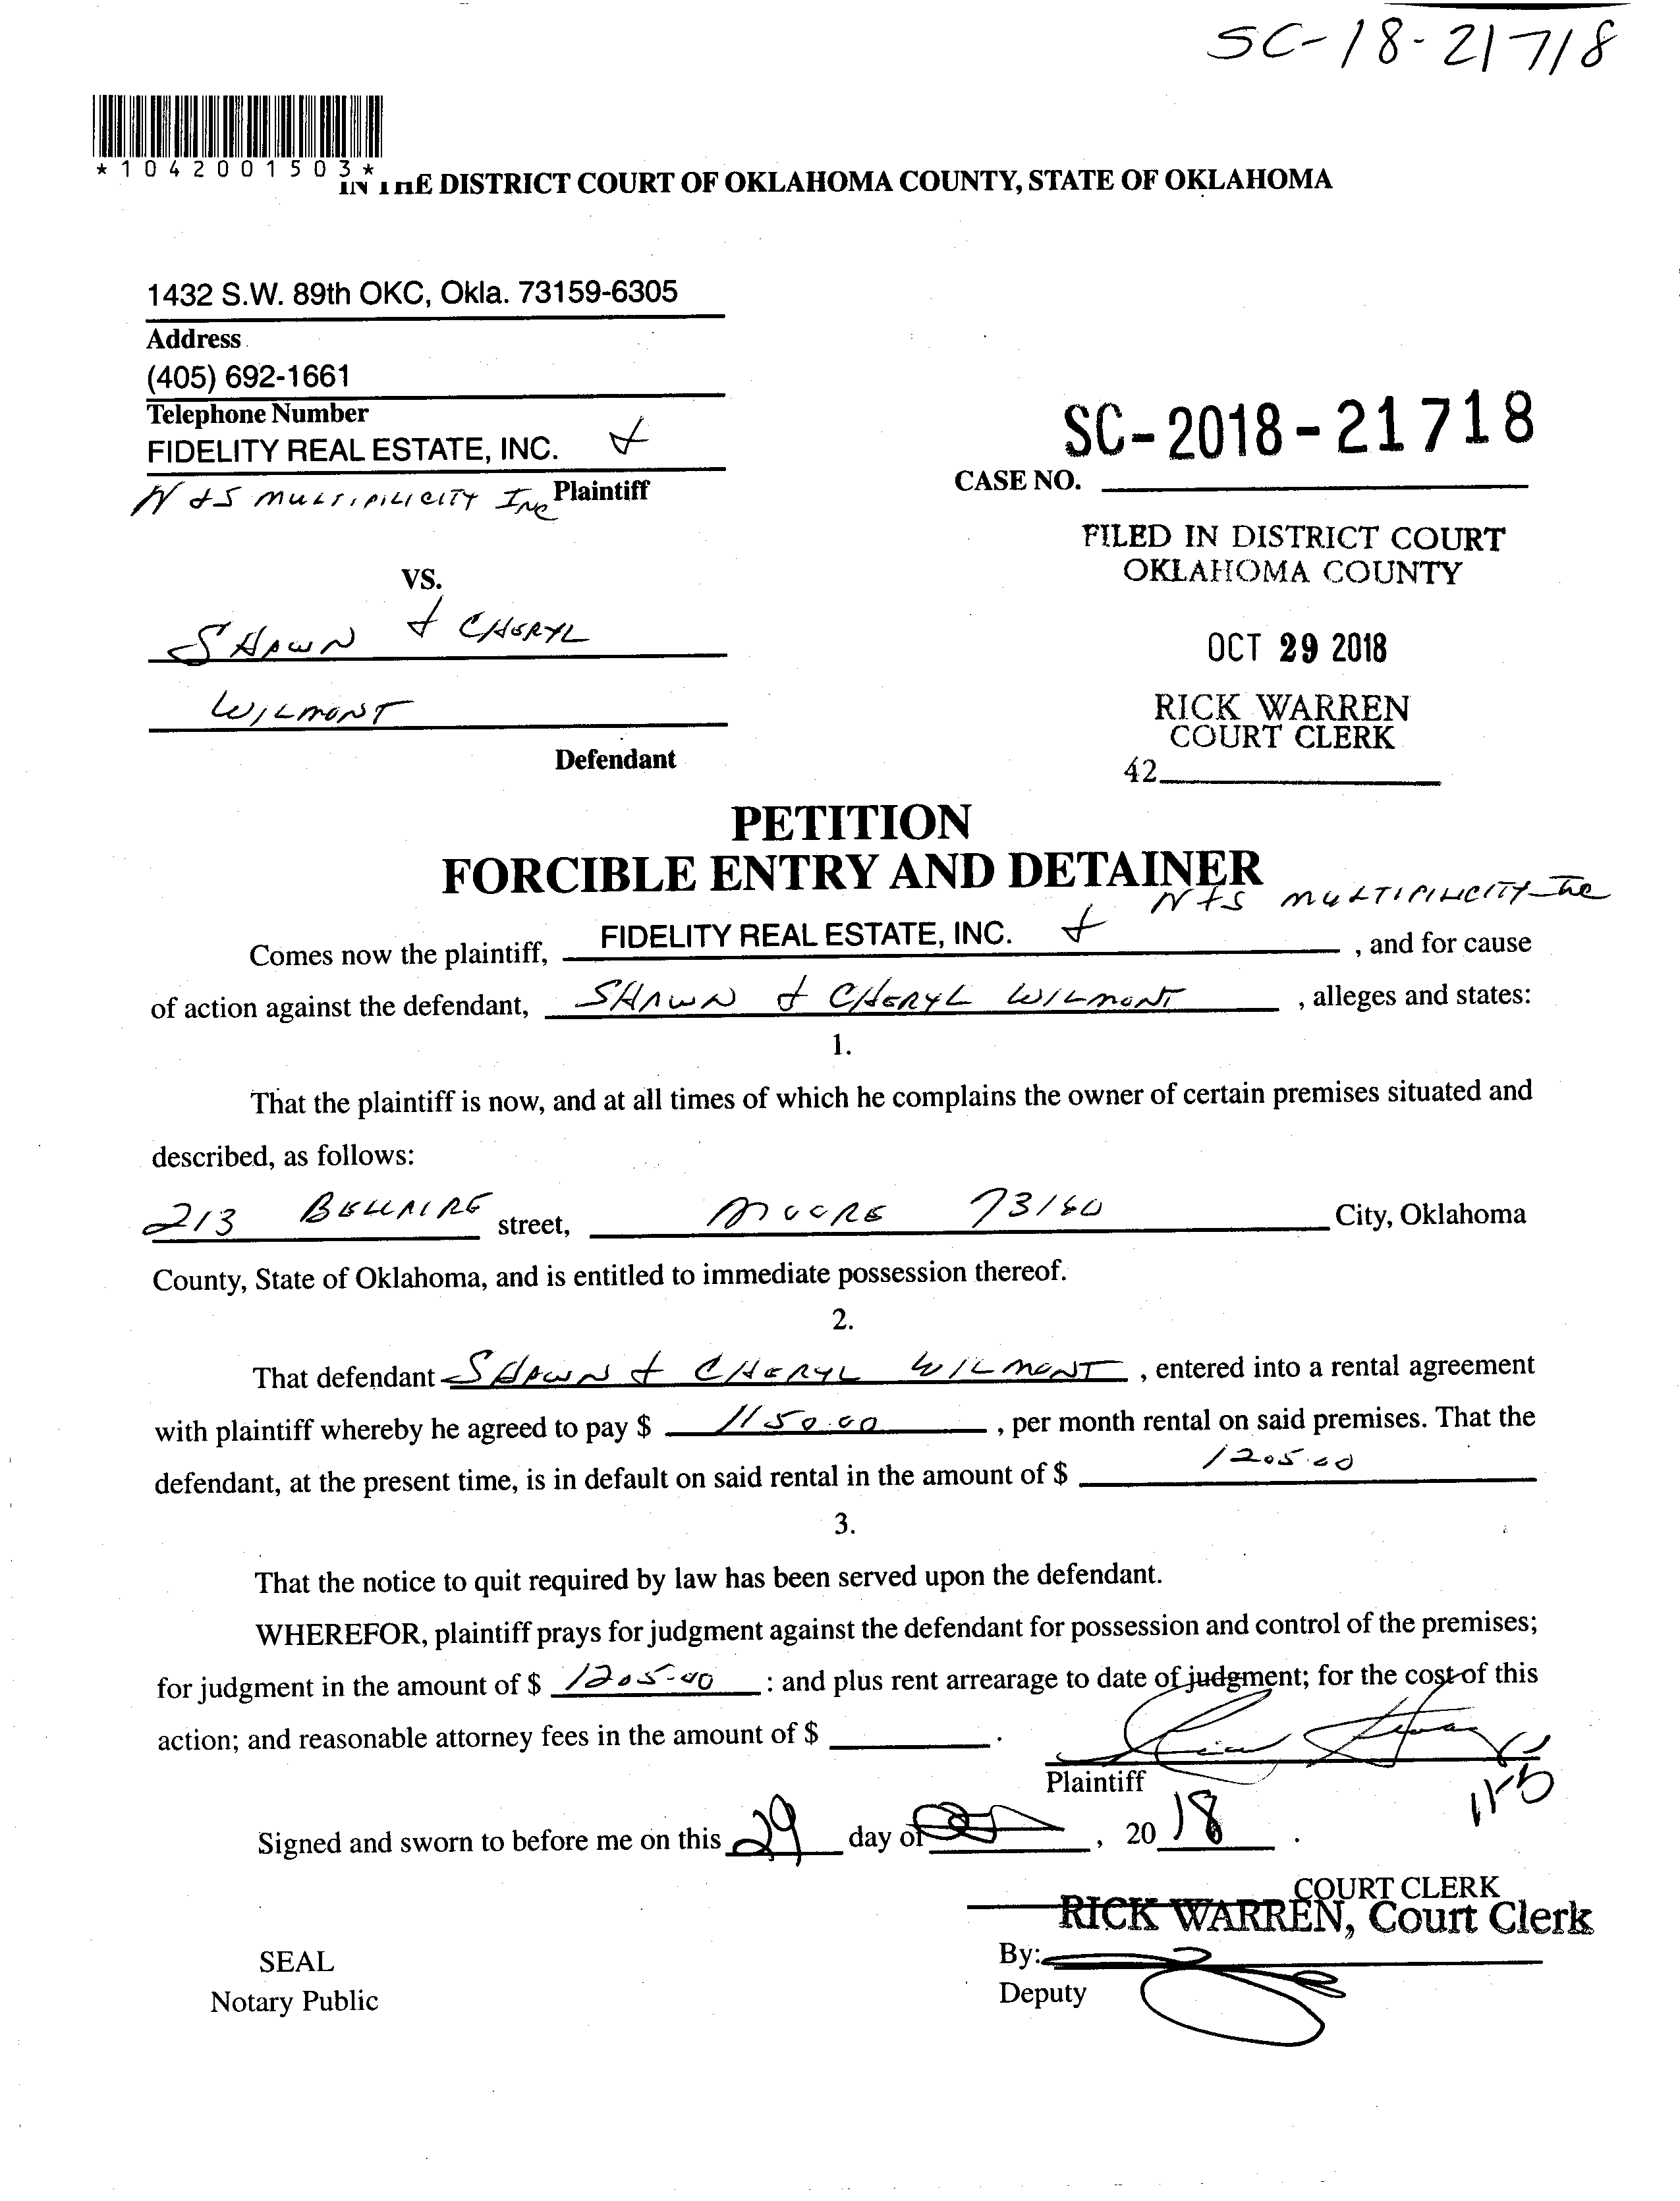 SC-18-21718
*1042001503*
IN THE DISTRICT COURT OF OKLAHOMA COUNTY, STATE OF OKLAHOMA
1432 S.W. 89th OKC, Okla. 73159-6305
Address
(405) 692-1661
Telephone Number
FIDELITY REAL ESTATE, INC. &
N &S MULTIPILICITY Inc Plaintiff
SC-2018-21718
CASE NO.
FILED IN DISTRICT COURT
OKLAHOMA COUNTY
OCT 29 2018
RICK WARREN
COURT CLERK
42
VS.
SHAWN & CHERYL
WILMONT
Defendant
PETITION
FORCIBLE ENTRY AND DETAINER
N+S MULTIPILICITY Inc
Comes now the plaintiff, FIDELITY REAL ESTATE, INC. & , and for cause
of action against the defendant, SHAWN & CHERYL WILMONT , alleges and states:
1.
That the plaintiff is now, and at all times of which he complains the owner of certain premises situated and
described, as follows:
213 BELLAIRE street, MOORE 73160 City, Oklahoma
County, State of Oklahoma, and is entitled to immediate possession thereof.
2.
That defendant SHAWN & CHERYL WILMONT , entered into a rental agreement
with plaintiff whereby he agreed to pay $ 1150.00 , per month rental on said premises. That the
defendant, at the present time, is in default on said rental in the amount of $ 1205.00
3.
That the notice to quit required by law has been served upon the defendant.
WHEREFOR, plaintiff prays for judgment against the defendant for possession and control of the premises;
for judgment in the amount of $ 1205.00 : and plus rent arrearage to date of judgment; for the cost of this
action; and reasonable attorney fees in the amount of $ .
Plaintiff
11-5
Signed and sworn to before me on this 29 day of , 20 18 .
COURT CLERK
RICK WARREN, Court Clerk
By:
Deputy
SEAL
Notary Public